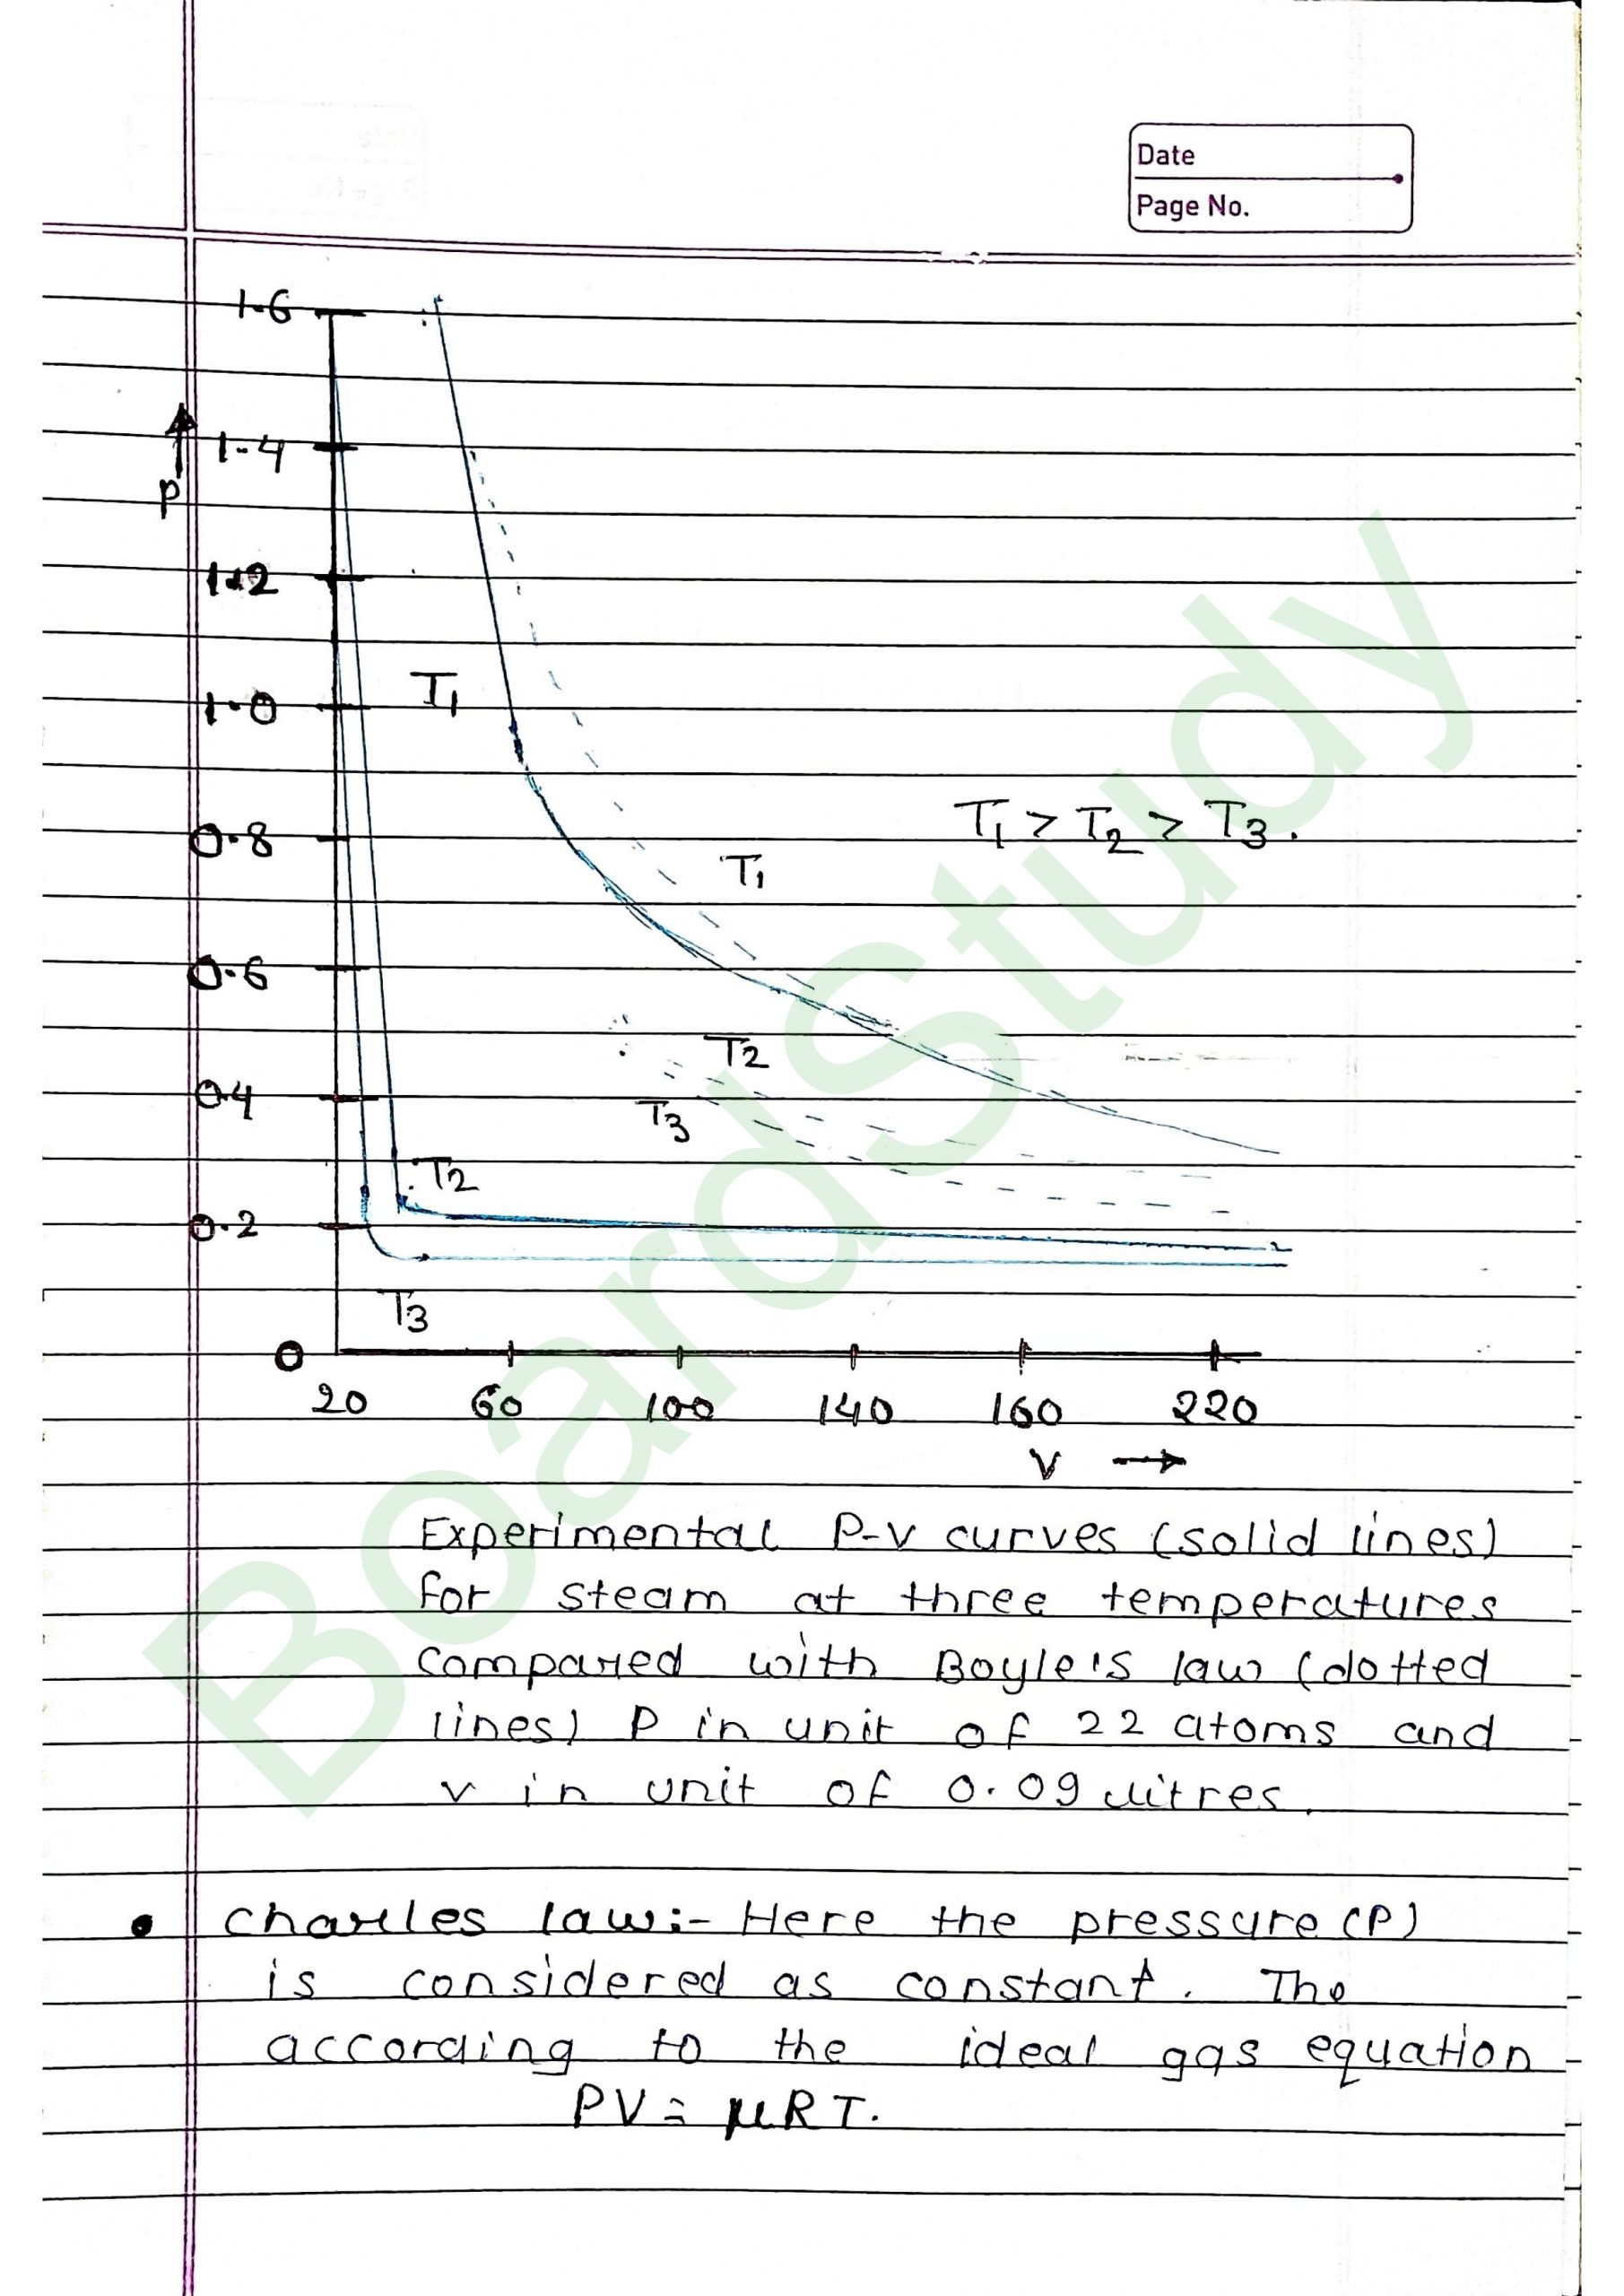 Date
Page No.
1.6
1.4
P
1.2
T1
1.0
T1 > T2 > T3.
0.8
T1
0.6
T2
0.4
T3
T2
0.2
T3
0
20 60 100 140 160 220
V →
Experimental P-V curves (solid lines)
for steam at three temperatures
compared with Boyle's law (dotted
lines) P in unit of 22 atoms and
v in unit of 0.09 litres.
• charles law:- Here the pressure (P)
is considered as constant. The
according to the ideal gas equation
PV = μRT.
BoardStudy